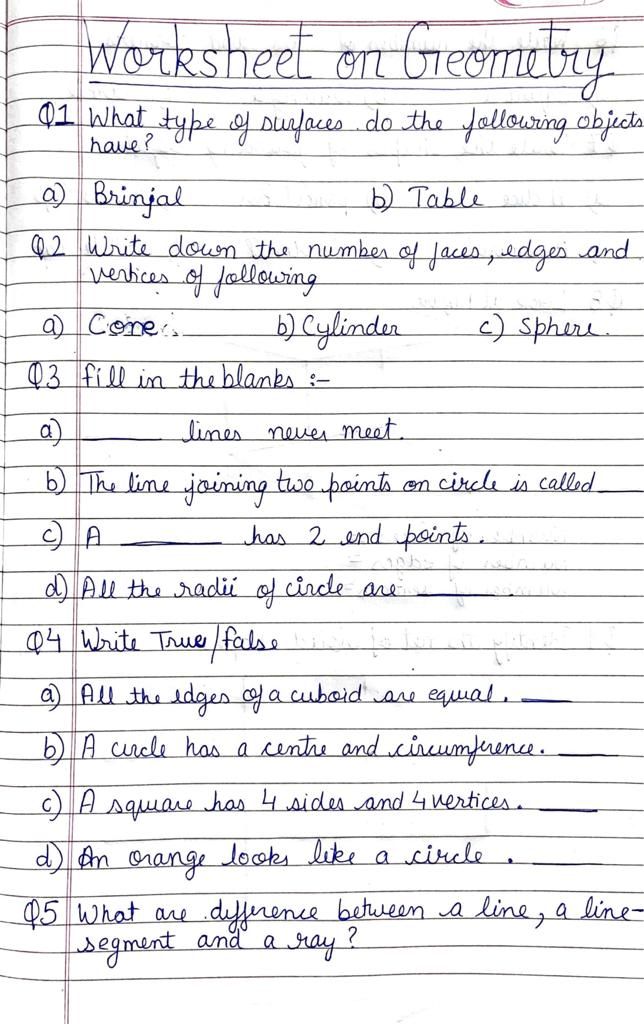 Worksheet on Geometry
Q1 What type of surfaces do the following objects
have?
a) Brinjal b) Table
Q.2 Write down the number of faces, edges and
vertices of following
a) Cone b) Cylinder c) Sphere.
Q3 fill in the blanks :-
a) ______ lines never meet.
b) The line joining two points on circle is called ____
c) A ______ has 2 end points.
d) All the radii of circle are ______.
Q4 Write True/false
a) All the edges of a cuboid are equal. ____
b) A circle has a centre and circumference. ____
c) A square has 4 sides and 4 vertices. ____
d) An orange looks like a circle. ____
Q5 What are difference between a line, a line-
segment and a ray?